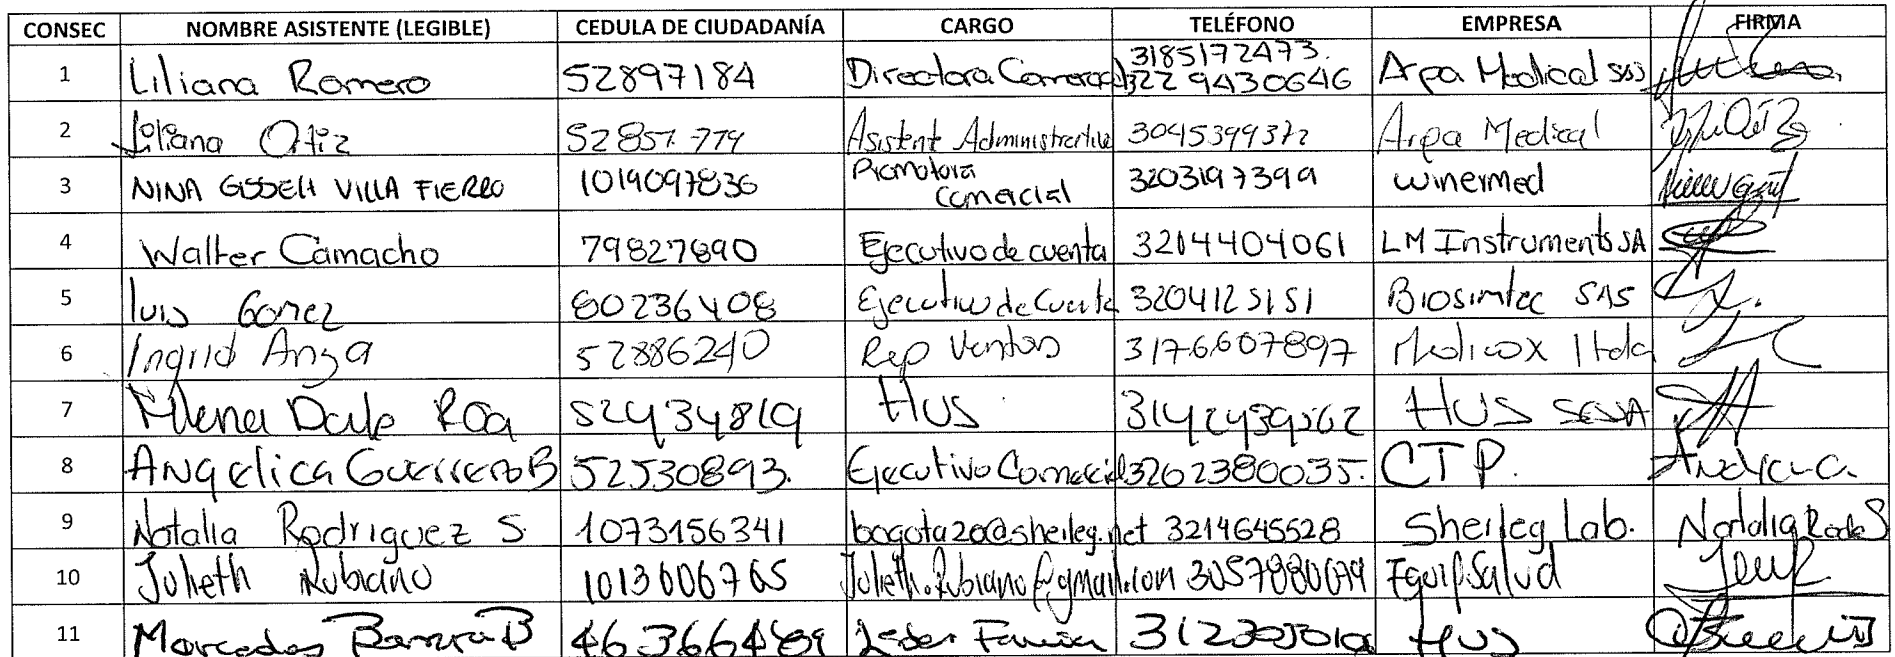 CONSEC NOMBRE ASISTENTE (LEGIBLE) CEDULA DE CIUDADANÍA CARGO TELÉFONO EMPRESA FIRMA
1 Liliana Romero 52897184 Directora Comercial 3185172473. 3229430646 Arpa Medical SAS
2 Liliana Ortiz 52857.779 Asistente Administrativa 3045399372 Arpa Medical
3 NINA GISSELH VILLA FIERRO 1019097836 Promotora Comercial 3203197399 Winermed
4 Walter Camacho 79827890 Ejecutivo de cuenta 3214404061 LM Instruments SA
5 luis Gomez 80236408 Ejecutivo de Cuenta 3204125151 Biosimtec SAS
6 Ingrid Anza 52886240 Rep Ventas 3176607897
7 52434819 HUS HUS
8 Angelica Guerrero B 52530893. Ejecutivo Comercial 3202380035. CTP.
9 Natalia Rodriguez S. 1073156341 bogota20@sheileg.net 3214645528 Sheileg Lab. Natalia Rodr S
10 Julieth Rubiano 1013606765 Julieth.Rubiano@gmail.com EquipSalud
11 HUS